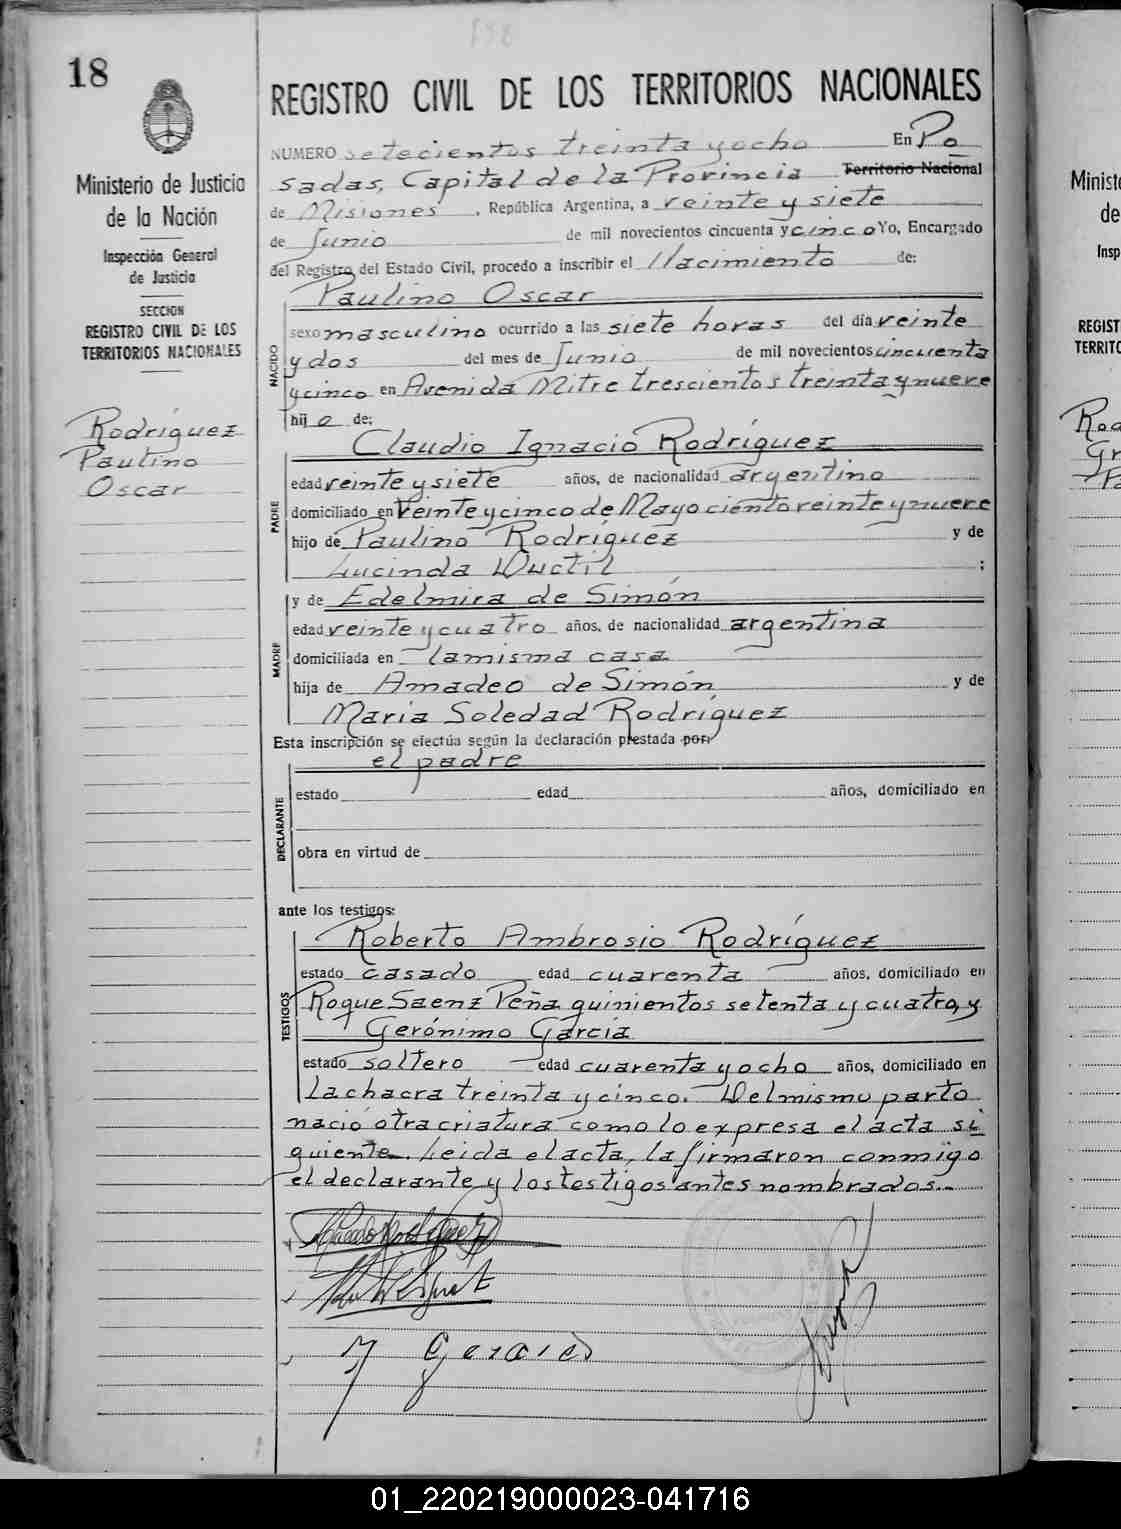 18
Ministerio de Justicia
de la Nación
Inspección General
de Justicia
SECCION
REGISTRO CIVIL DE LOS
TERRITORIOS NACIONALES
Rodríguez
Paulino
Oscar
REGISTRO CIVIL DE LOS TERRITORIOS NACIONALES
NUMERO setecientos treinta y ocho En Po
sadas, Capital de la Provincia Territorio Nacional
de Misiones, República Argentina, a veinte y siete
de Junio de mil novecientos cincuenta y cinco Yo, Encargado
del Registro del Estado Civil, procedo a inscribir el Nacimiento de:
Paulino Oscar
NACIDO
sexo masculino ocurrido a las siete horas del día veinte
y dos del mes de Junio de mil novecientos cincuenta
y cinco en Avenida Mitre trescientos treinta y nueve
hijo de:
Claudio Ignacio Rodríguez
PADRE
edad veinte y siete años, de nacionalidad argentino
domiciliado en Veinte y cinco de Mayo ciento veinte y nueve
hijo de Paulino Rodríguez y de
Lucinda Ductil ;
MADRE
y de Edelmira de Simón
edad veinte y cuatro años, de nacionalidad argentina
domiciliada en la misma casa
hija de Amadeo de Simón y de
Maria Soledad Rodríguez
Esta inscripción se efectúa según la declaración prestada por:
el padre
DECLARANTE
estado edad años, domiciliado en
obra en virtud de
ante los testigos:
TESTIGOS
Roberto Ambrosio Rodríguez
estado casado edad cuarenta años, domiciliado en
Roque Saenz Peña quinientos setenta y cuatro, y
Gerónimo García
estado soltero edad cuarenta y ocho años, domiciliado en
la chacra treinta y cinco. Del mismo parto
nació otra criatura como lo expresa el acta si
guiente. Leida el acta, la firmaron conmigo
el declarante y los testigos antes nombrados.-
Minist
de
Insp
REGIST
TERRITO
01_220219000023-041716